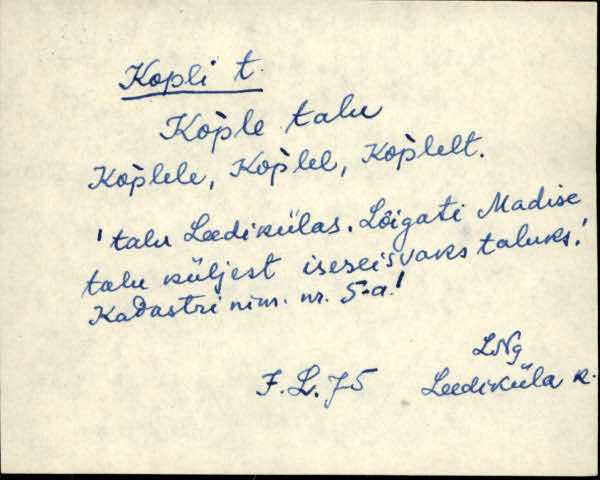 Kopli t.
Kop̀le talu
Kop̀lele, Kop̀lel, Kop̀lelt.
'talu Leedikülas. Lõigati Madise
talu küljest iseseisvaks taluks.'
Kadastri nim. nr. 5-a!
LNg
F. L. 75 Leediküla k.